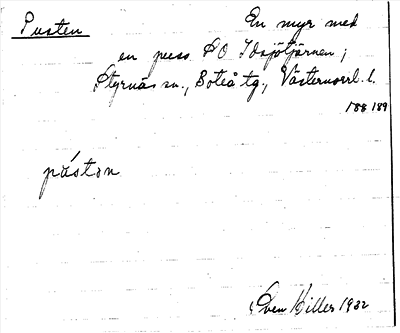 Pusten En myr med
en puss SO Idsjötjärnen;
Styrnäs sn., Boteå tg., Västernorrl. l.
188 189
pústәn
Sven Hiller 1932